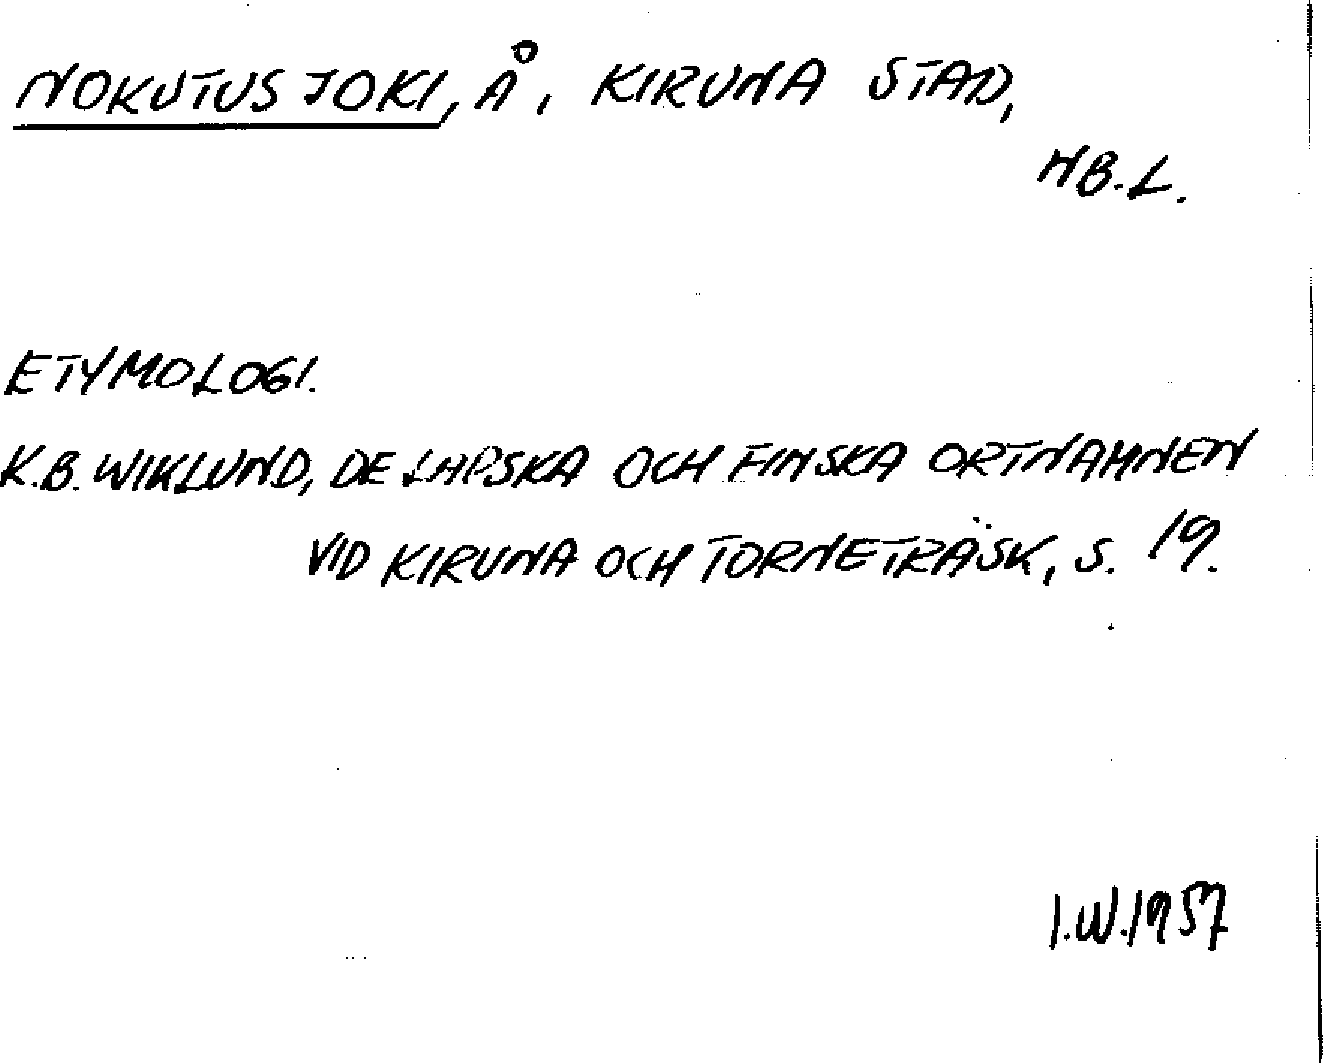 NOKUTUSJOKI, Å, KIRUNA STAD,
NB.L.
ETYMOLOGI.
K.B. WIKLUND, DE LAPSKA OCH FINSKA ORTNAMNEN
VID KIRUNA OCH TORNETRÄSK, S. 19.
I.W.1957